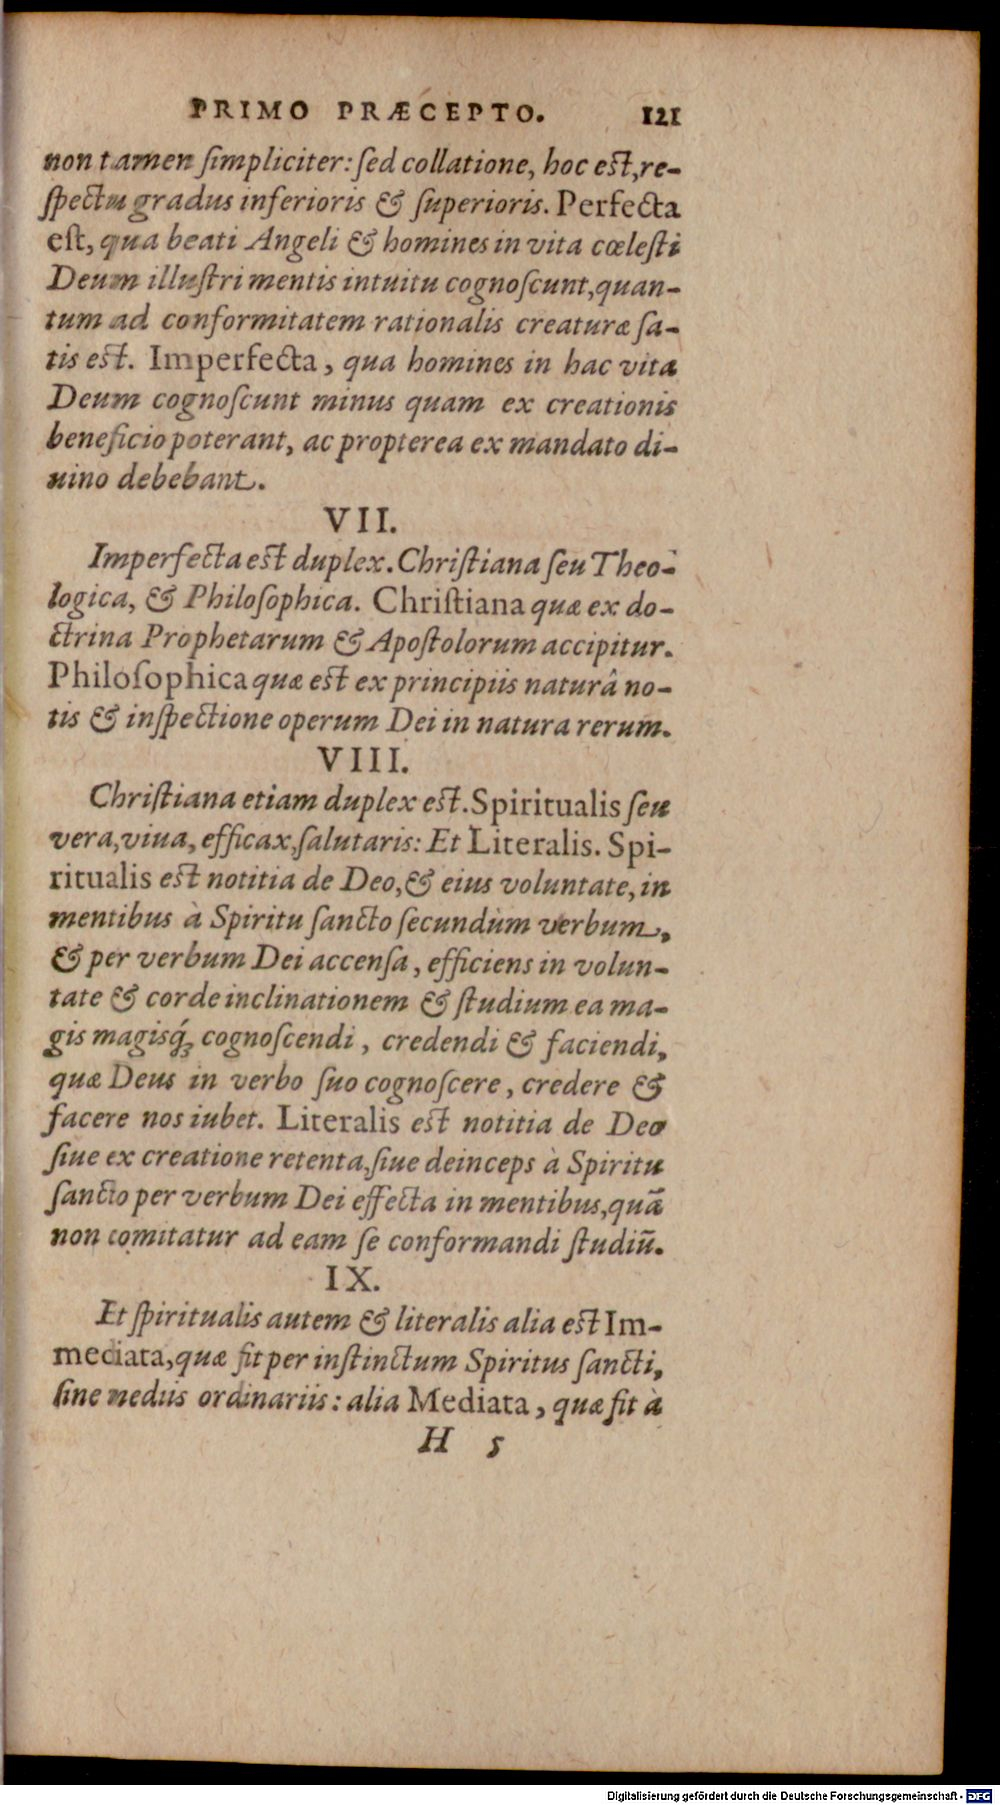 PRIMO PRÆCEPTO. 121
non tamen ſimpliciter: ſed collatione, hoc eſt, re-
ſpectu gradus inferioris & ſuperioris. Perfecta
eſt, qua beati Angeli & homines in vita cœleſti
Deum illuſtri mentis intuitu cognoſcunt, quan-
tum ad conformitatem rationalis creaturæ ſa-
tis eſt. Imperfecta, qua homines in hac vita
Deum cognoſcunt minus quam ex creationis
beneficio poterant, ac propterea ex mandato di-
uino debebant.
VII.
Imperfecta eſt duplex. Chriſtiana ſeu Theo-
logica, & Philoſophica. Chriſtiana quæ ex do-
ctrina Prophetarum & Apoſtolorum accipitur.
Philoſophica quæ eſt ex principiis naturâ no-
tis & inſpectione operum Dei in natura rerum.
VIII.
Chriſtiana etiam duplex eſt. Spiritualis ſeu
vera, viua, efficax, ſalutaris: Et Literalis. Spi-
ritualis eſt notitia de Deo, & eius voluntate, in
mentibus à Spiritu ſancto ſecundùm verbum,
& per verbum Dei accenſa, efficiens in volun-
tate & corde inclinationem & ſtudium ea ma-
gis magisq́; cognoſcendi, credendi & faciendi,
quæ Deus in verbo ſuo cognoſcere, credere &
facere nos iubet. Literalis eſt notitia de Deo
ſiue ex creatione retenta, ſiue deinceps à Spiritu
ſancto per verbum Dei effecta in mentibus, quã
non comitatur ad eam ſe conformandi ſtudiũ.
IX.
Et ſpiritualis autem & literalis alia eſt Im-
mediata, quæ fit per inſtinctum Spiritus ſancti,
ſine mediis ordinariis: alia Mediata, quæ fit à
H 5
Digitalisierung gefördert durch die Deutsche Forschungsgemeinschaft - DFG